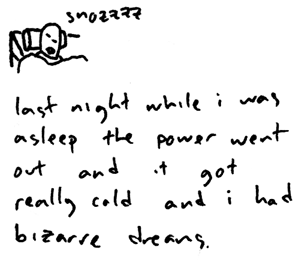 snozzzz
last night while i was
asleep the power went
out and it got
really cold and i had
bizarre dreams.